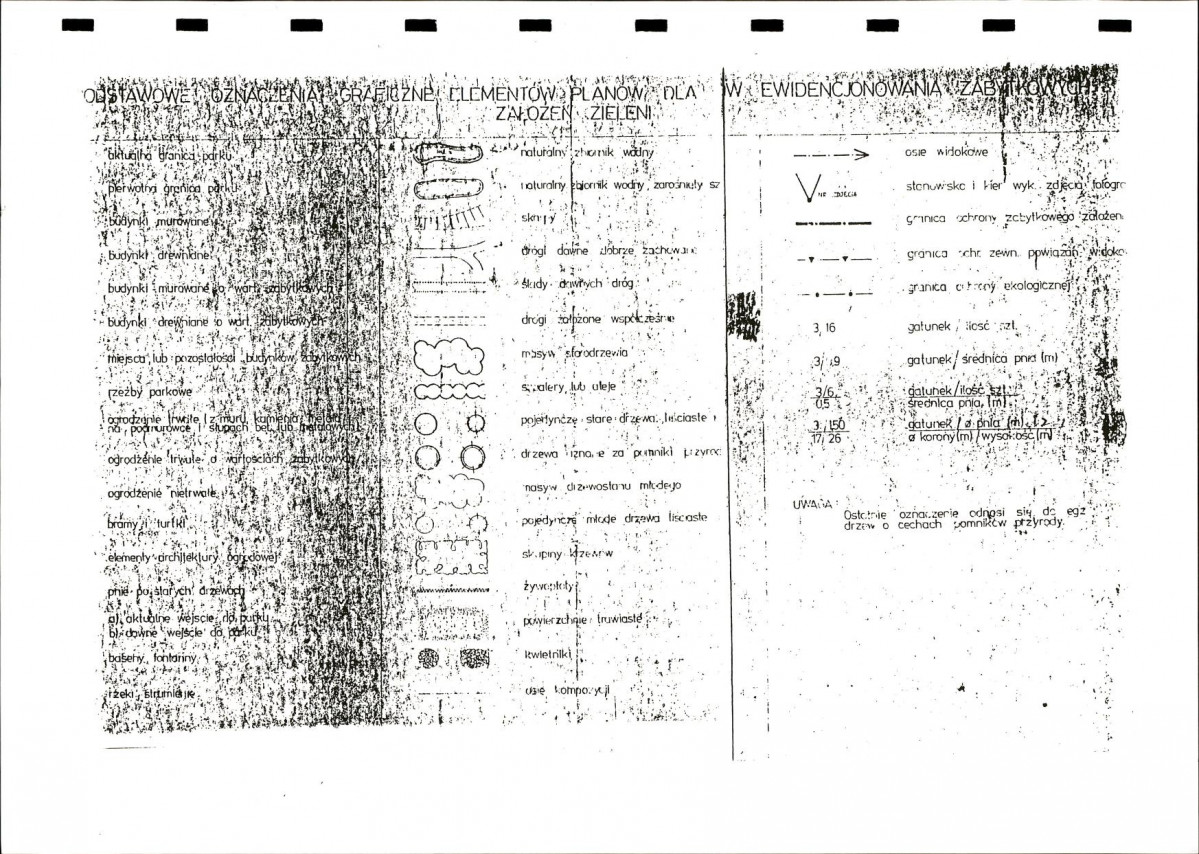 ODSTAWOWE OZNACZENIA GRAFICZNE ELEMENTÓW PLANÓW DLA W EWIDENCJONOWANIA ZABYTKOWYCH
ZAŁOŻEŃ ZIELENI
aktualna granica parku
pierwotna granica parku
budynki murowane
budynki drewniane
budynki murowane o wart. zabytkowych
budynki drewniane o wart. zabytkowych
miejsca lub pozostałości budynków zabytkowych
rzeźby parkowe
ogrodzenie trwałe (z muru, kamienia, metalu
na podmurówce i słupach bet. lub metalowych)
ogrodzenie trwałe o wartościach zabytkowych
ogrodzenie nietrwałe
bramy i furtki
elementy architektury ogrodowej
pnie po starych drzewach
a) aktualne wejście do parku
b) dawne wejście do parku
baseny, fontanny
rzeki, strumienie
naturalny zbiornik wodny
naturalny zbiornik wodny, zarośnięty sz
skarpy
drogi dawne dobrze zachowane
ślady dawnych dróg
drogi założone współcześnie
masyw starodrzewia
szpalery lub aleje
pojedyncze stare drzewa liściaste i
drzewa uznane za pomniki przyrod
masyw drzewostanu młodego
pojedyncze młode drzewa liściaste
skupiny krzewów
żywopłoty
powierzchnie trawiaste
kwietniki
osie kompozycji
osie widokowe
NR ZDJĘCIA
stanowisko i kier. wyk. zdjęcia fotogra
granica ochrony zabytkowego założeni
granica ochr. zewn. powiązań widoko
granica ochrony ekologicznej
3, 16 gatunek / ilość szt.
3/ ,9 gatunek / średnica pnia (m)
3/6 gatunek/ilość szt.
0,5 średnica pnia, (m)
3 /150 gatunek / ø pnia (m)
17/ 26 ø korony (m) / wysokość (m)
UWAGA:
Ostatnie oznaczenie odnosi się do egz.
drzew o cechach pomników przyrody.